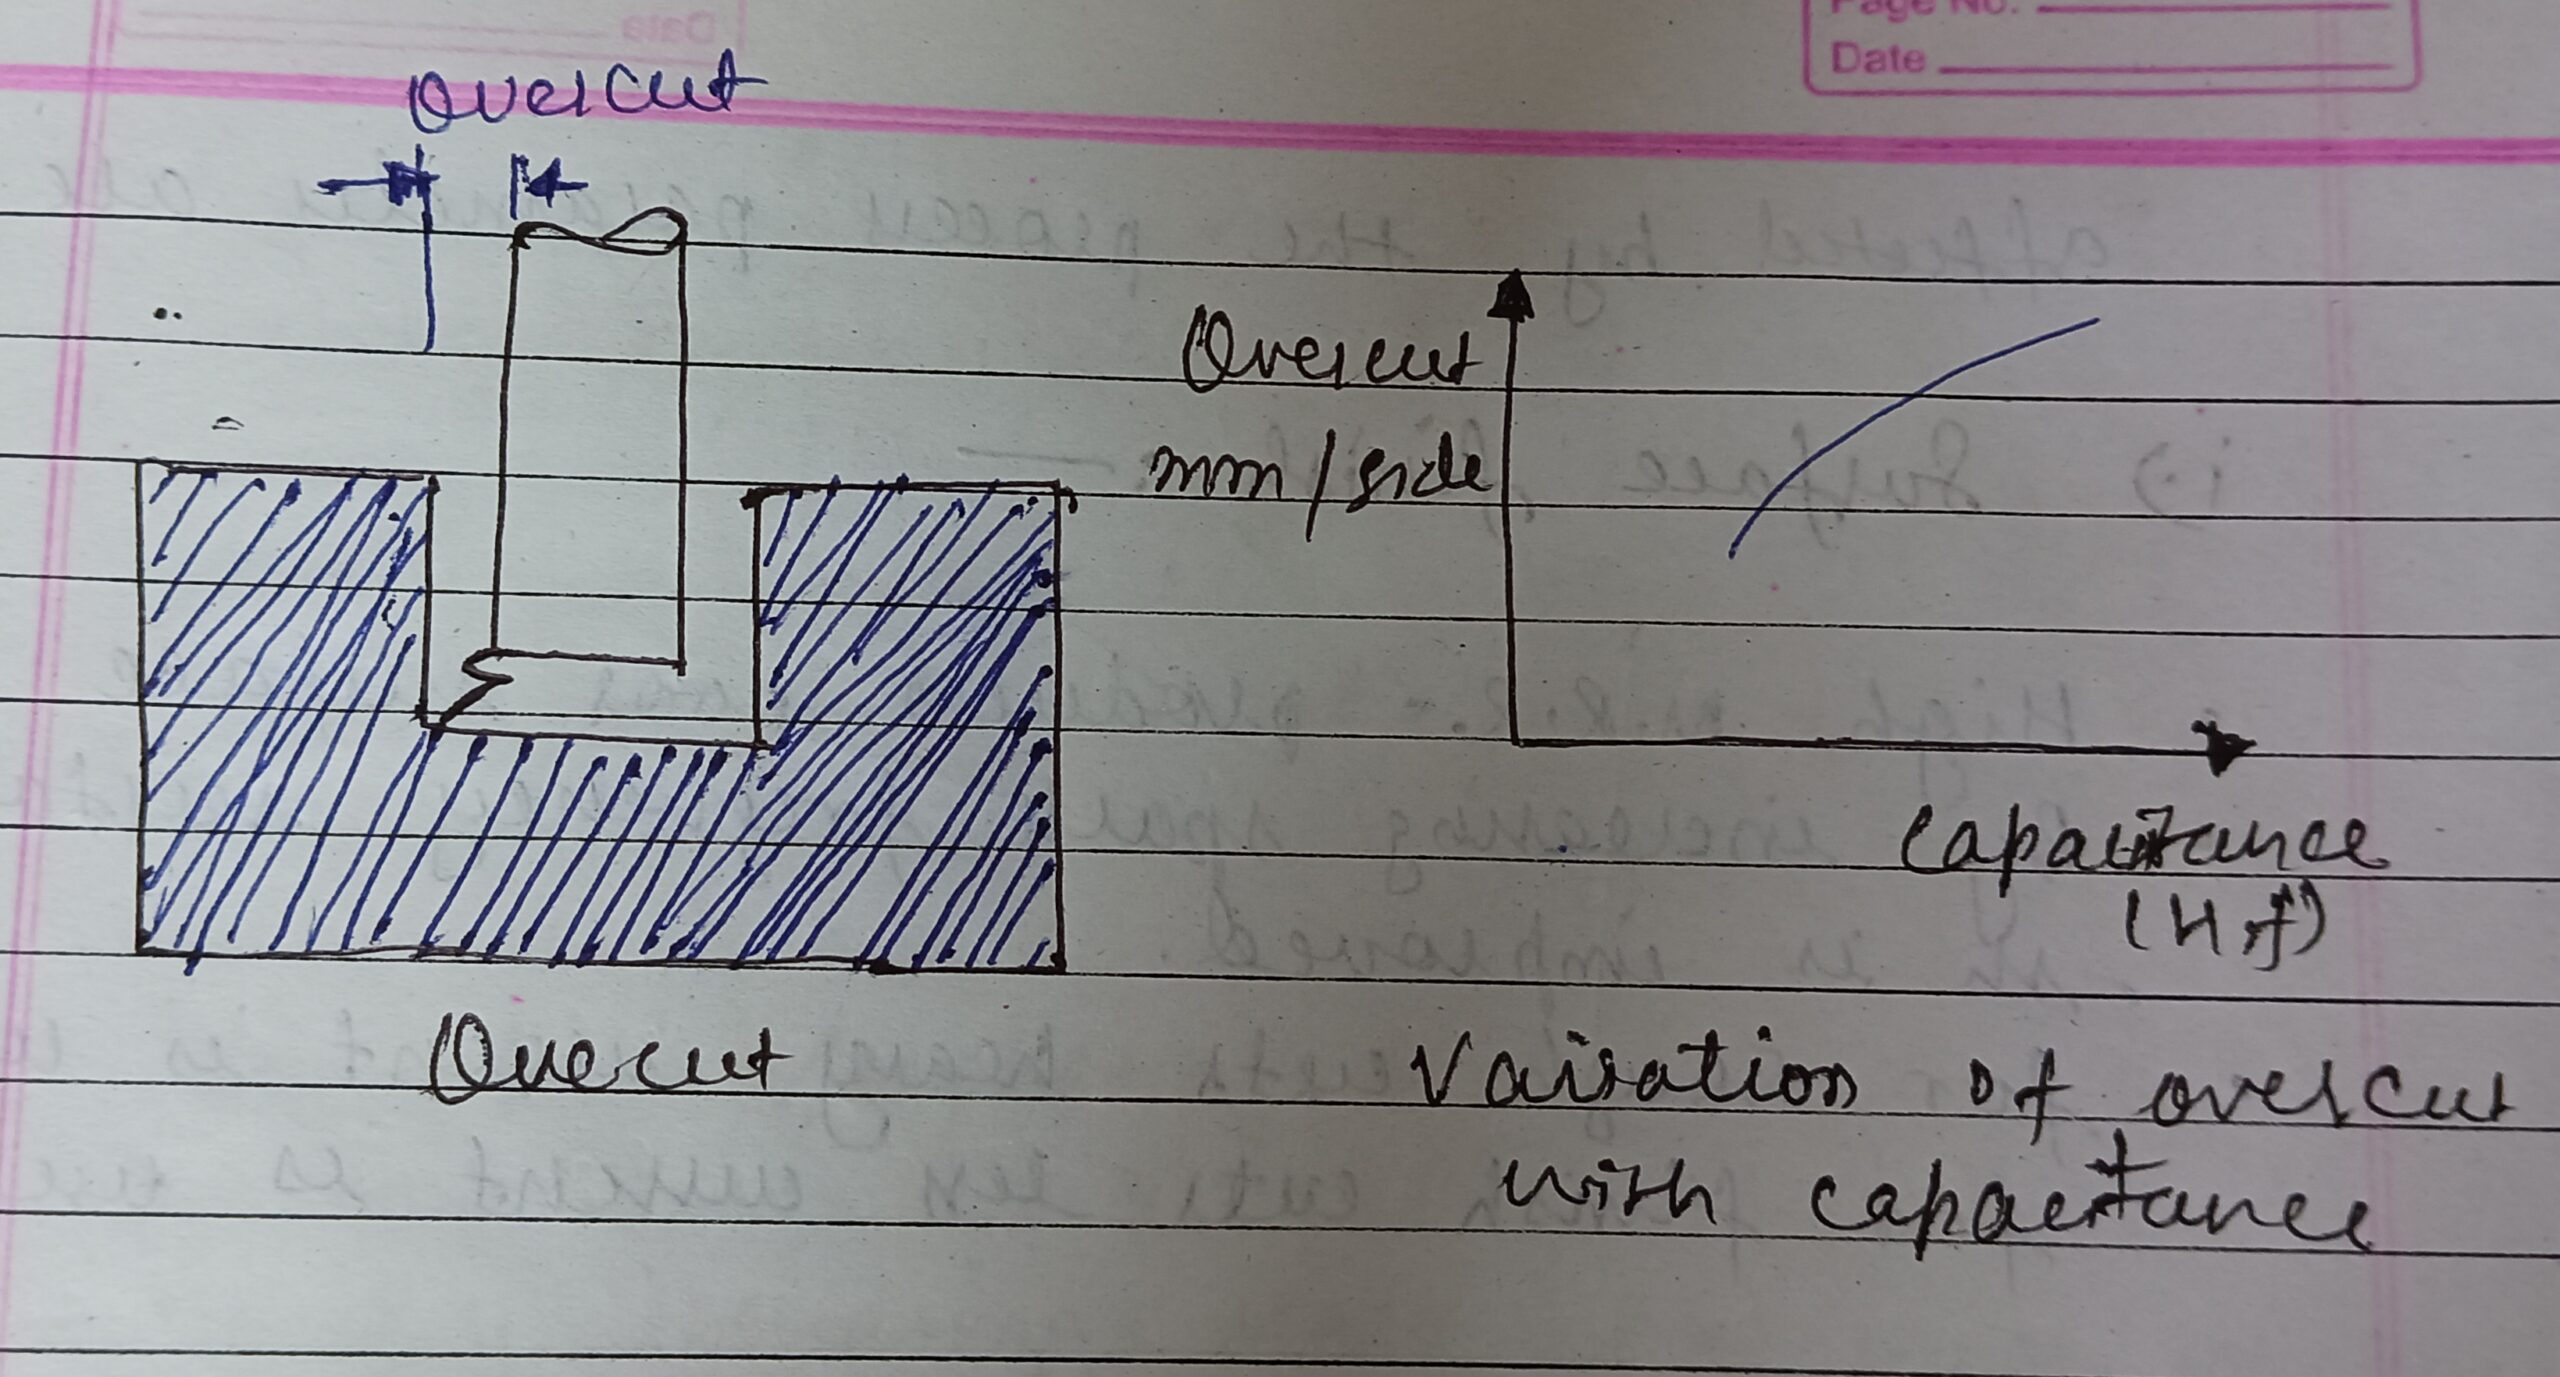 Page No.
Date
Overcut
Overcut
mm/side
Capacitance
(H.f)
Ovecut
Vairation of overcut
with capacitance